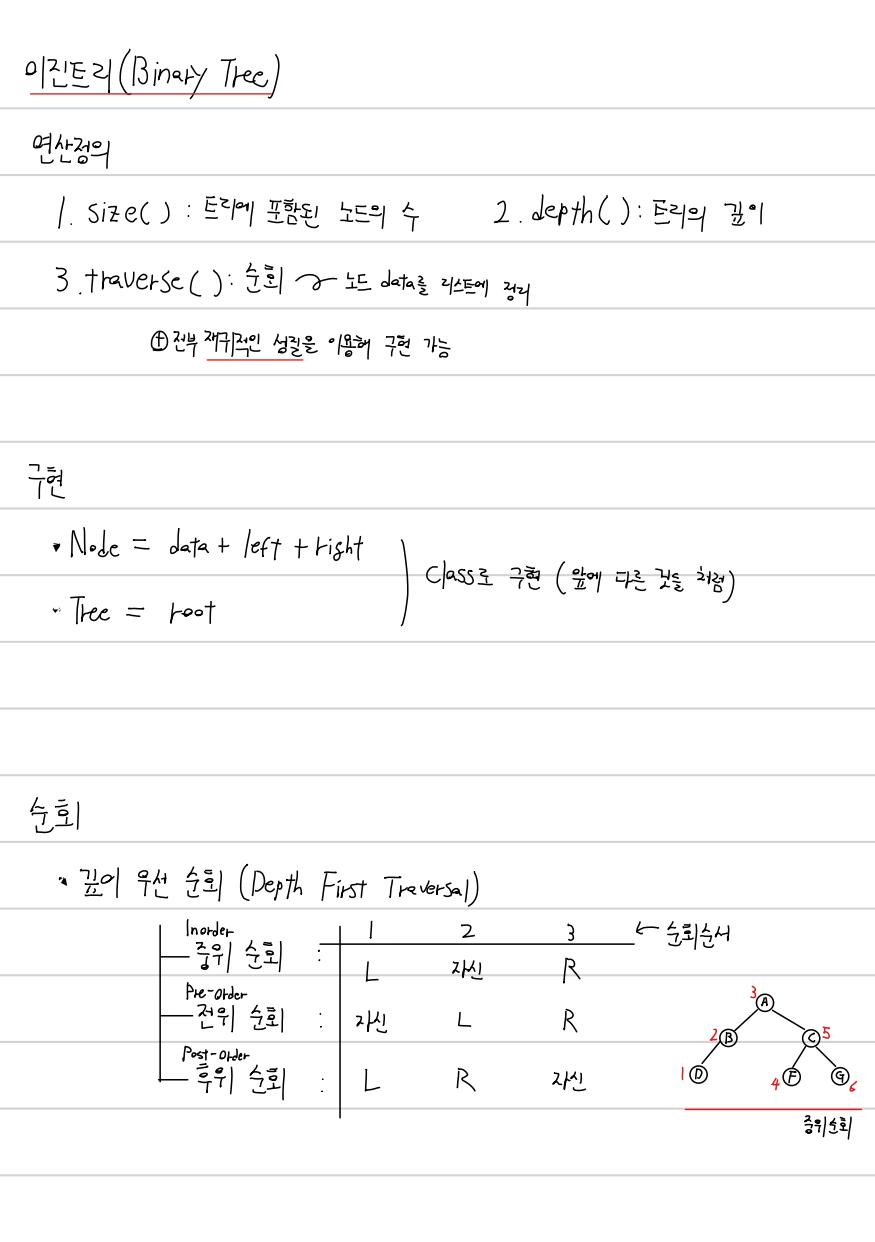 이진트리(Binary Tree)
연산정의
1. size( ) : 트리에 포함된 노드의 수 2. depth( ) : 트리의 깊이
3. traverse( ) : 순회 ~> 노드 data를 리스트에 정리
⊕ 전부 재귀적인 성질을 이용해 구현 가능
구현
• Node = data + left + right
Class로 구현 (앞에 다른 것들 처럼)
• Tree = root
순회
• 깊이 우선 순회 (Depth First Traversal)
Inorder 1 2 3 ← 순회순서
중위 순회 : L 자신 R
Pre-order
전위 순회 : 자신 L R
Post-order
후위 순회 : L R 자신
3 A
2 B C 5
1 D 4 F G 6
중위순회